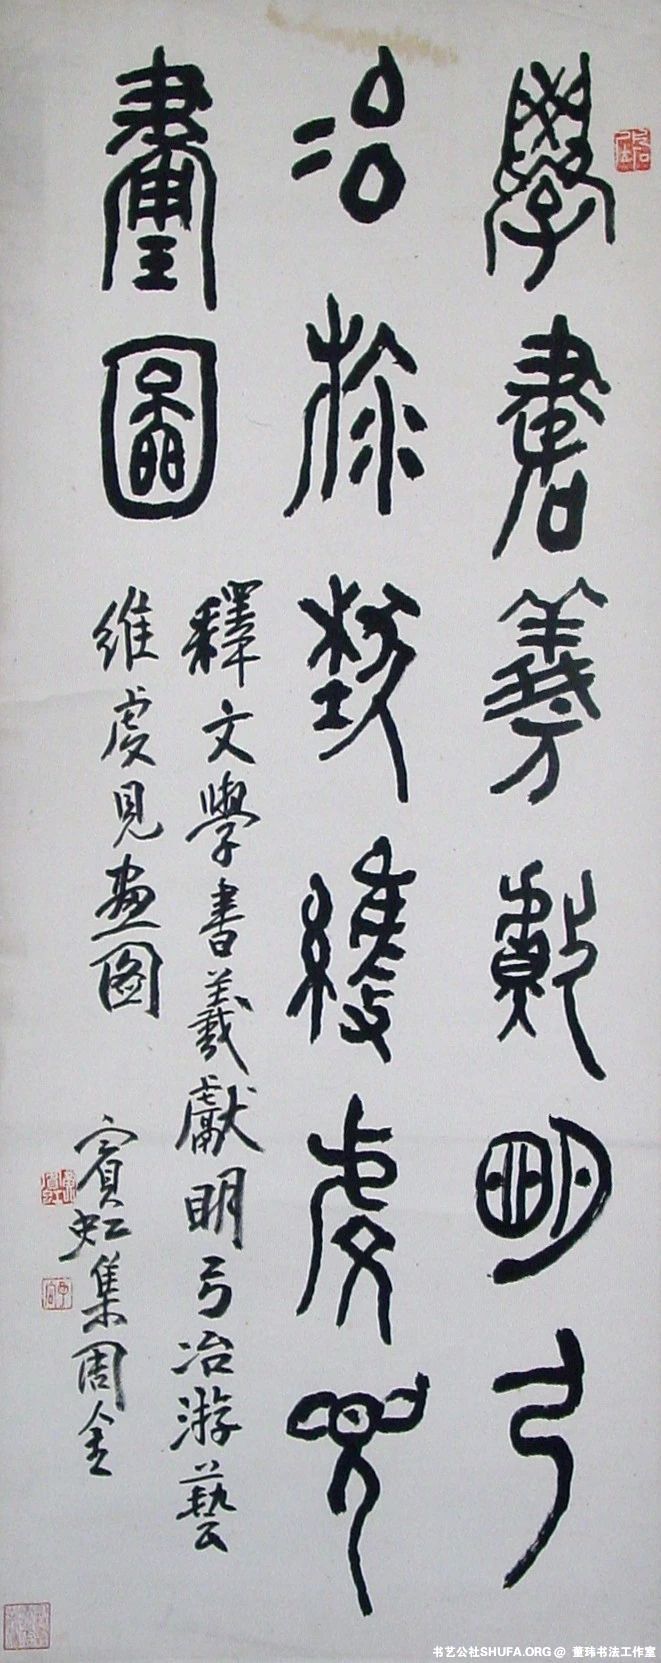 學書羲獻明弓
冶游藝維虔見
畫圖
釋文學書羲獻明弓冶游藝
維虔見畫圖
賓虹集周金
书艺公社SHUFA.ORG @ 董玮书法工作室